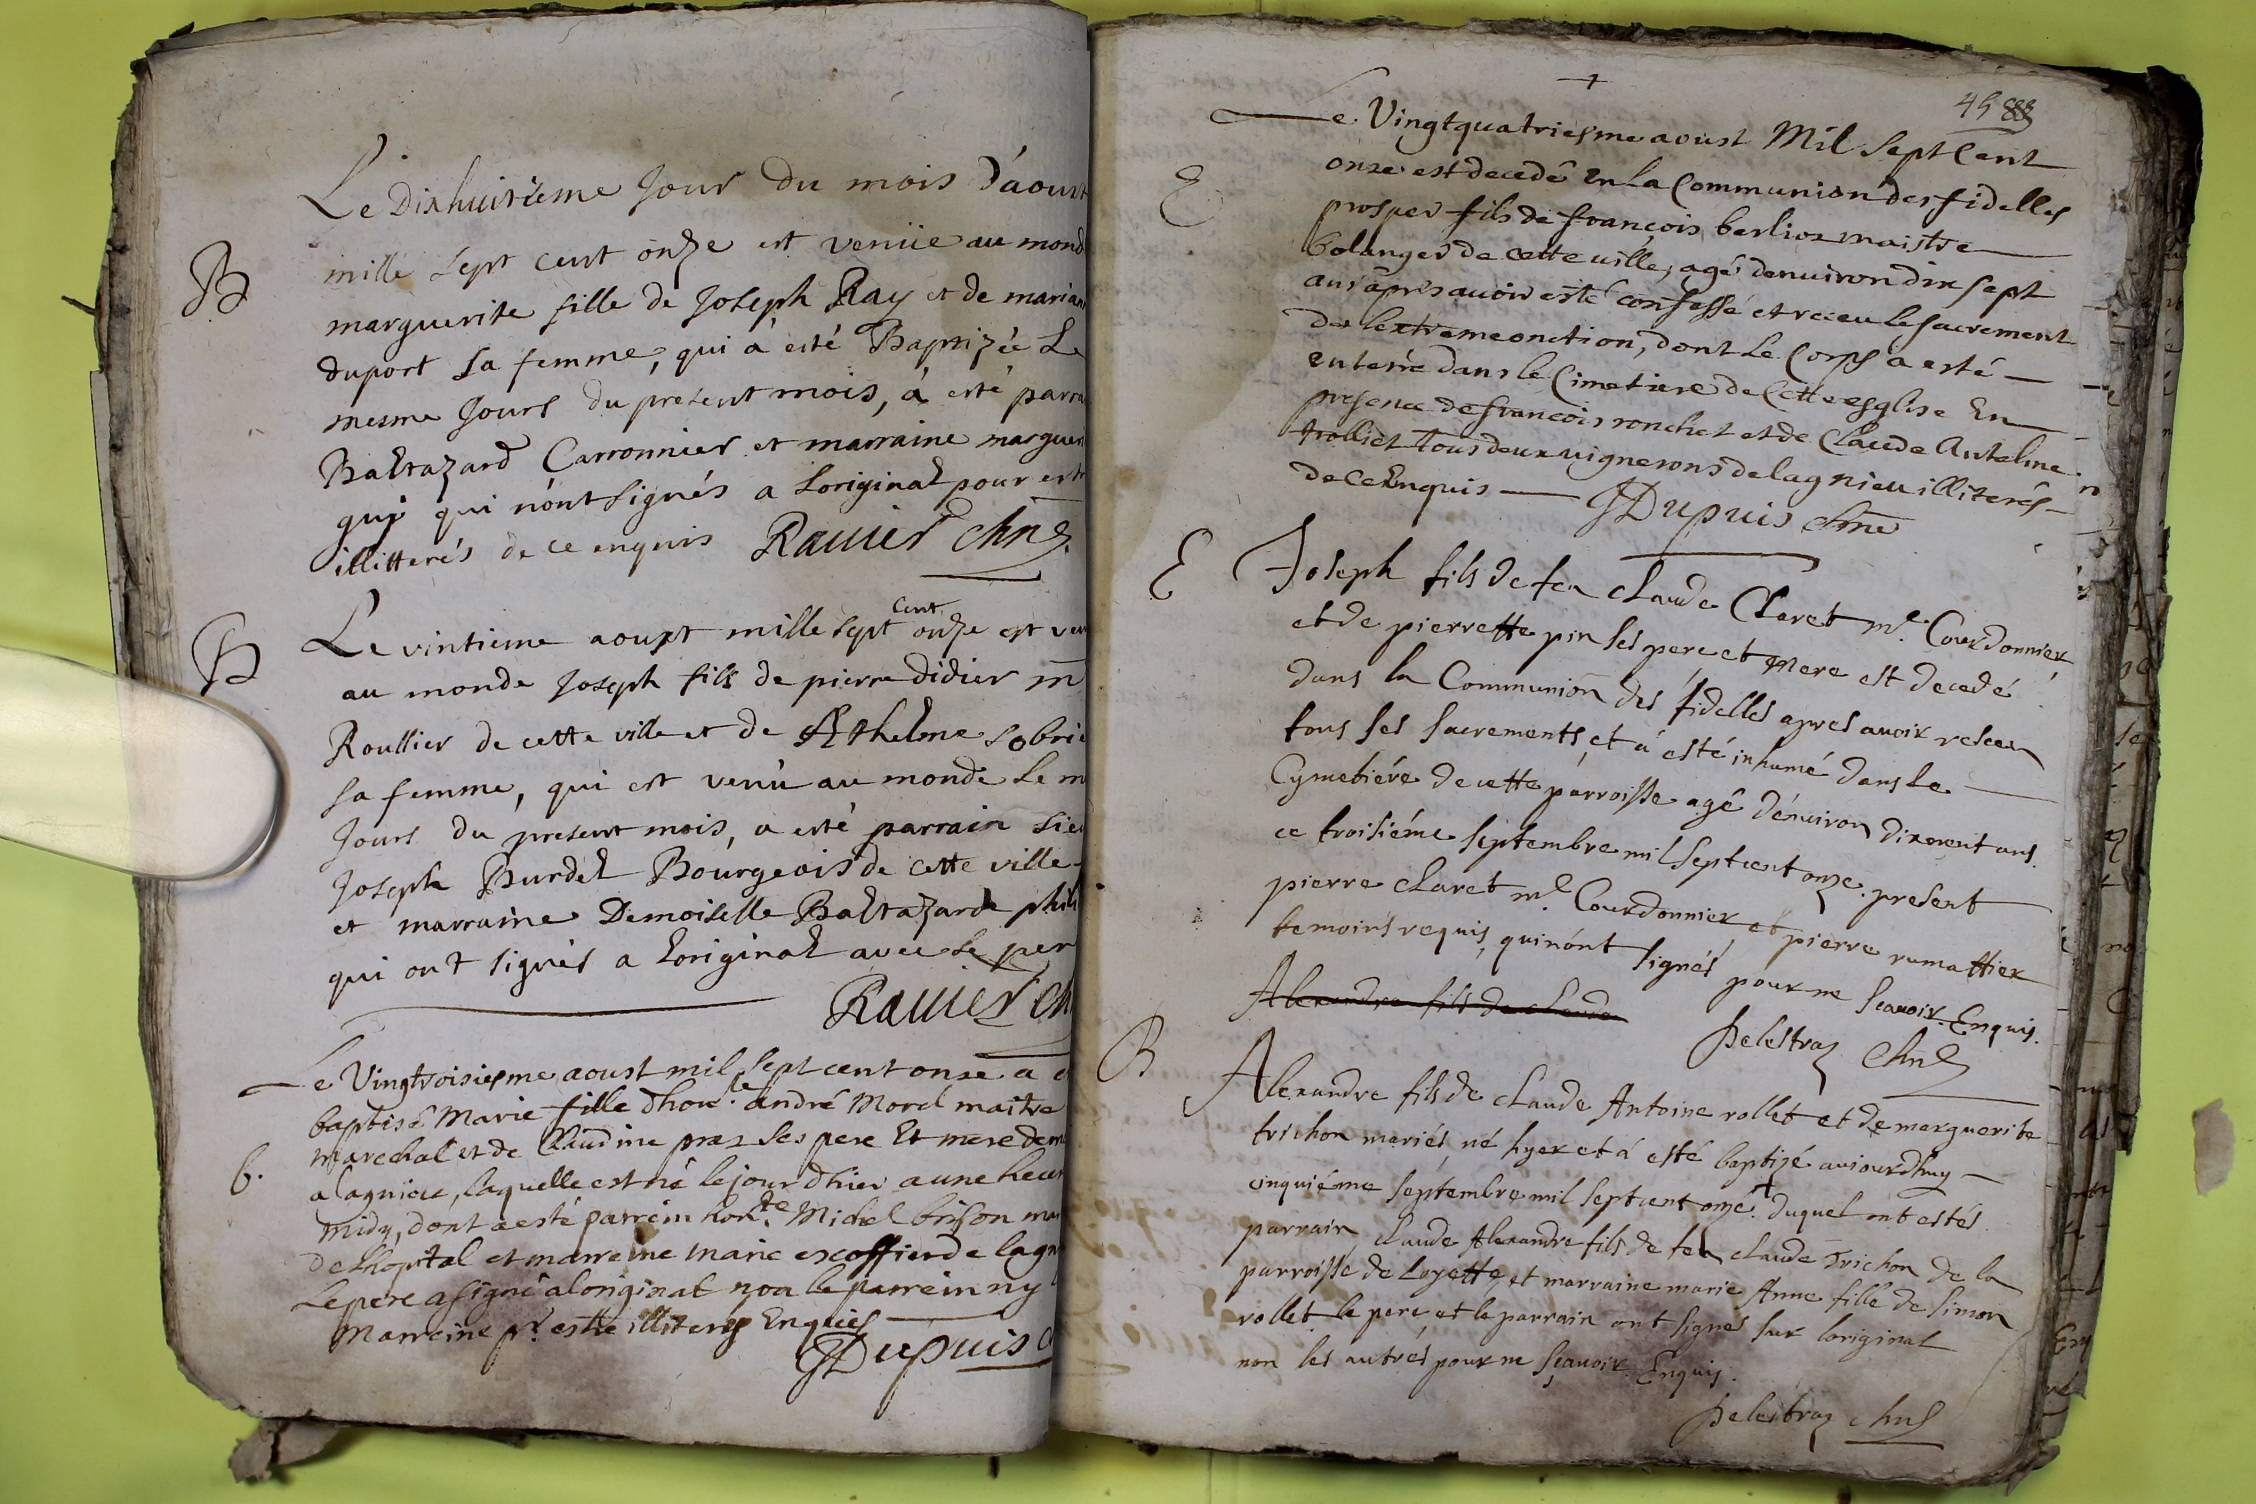 Le Dixhuitieme Jour Du mois D'áoust
B
mille sept cent onze est venüe au mond
marguerite fille de Joseph Ray et de marian
duport sa femme, qui à esté Baptizée Le
mesme Jours du present mois, à esté parra
Baltazard Carronnier et marraine margueri
guy qui n'ont signés a Loriginal pour estr
illitterés de ce enquis Ravier chne
B
Le vintieme aoust mille sept cent onze est ven
au monde Joseph fils de pierre didier m
Roullier de cette ville et de Anthelme sobrie
sa femme, qui est venu au monde Le m
Jours du present mois, a esté parrain sieu
Joseph Burdel Bourgeois de cette ville
et marraine Demoiselle Baltazarde phili
qui ont signés a Loriginal avec Le per
Ravier ch
Le Vingtroisiesme aoust mil sept cent onze a e
baptisé Marie fille d'hon.le andré Morel maitre
marechal et de Claudine praz ses pere Et mere dem
6.
a lagnieu, laquelle est né le jour d'hier a une heur
midy, dont a esté parrein hon.te Michel brison ma
de Lhopital et marreine marie escoffier de lagn
Le pere a signé a loriginal non le parrein ny l
Marreine pr. estre illiterés Enquis
JDupuis c
45 888
Le Vingtquatriesme aoust Mil Sept Cent
E
onze est decedé en La Communion des fidelles
prosper fils de françois berlioz maistre
bolanger de cette ville, agé denuiron dix sept
ans apres auoir esté confessé et receu le sacrement
de lextremeonction, dont Le Corps a esté
enterré dans le Cimetiere de Cette esglise En
presence de francois ronchet et de Claude Antelme
trolliet tous deux vignerons de lagnieu illiterés
de ce Enquis JDupuis chne
E
Joseph fils de feu claude Claret me. Courdonnier
et de pierrette pin ses pere et mere est decedé
dans la Communion des fidelles apres auoir receu
tous ses sacrements, et à esté inhumé dans Le
Cymetiére de cette parroisse agé d'énuiron dix ans.
ce troisiéme septembre mil sept cent onze. present
pierre claret me. Courdonnier et pierre rumattier
temoins requis, qui n'ont signés pour ne sçauoir. Enquis.
Alexandre fils de claude
Delestraz chne
B
Alexandre fils de claude Antoine rollet et de marguerite
trichon mariés, né hyer et à esté baptizé aujourdhuy
cinquiéme septembre mil sept cent onze. duquel ont estés
parrain claude Alexandre fils de feu claude Trichon de la
parroisse de Loyette, et marraine marie Anne fille de simon
rollet. le pere, et le parrain ont signés sur loriginal
non les autres, pour ne sçauoir. Enquis.
Delestraz chne